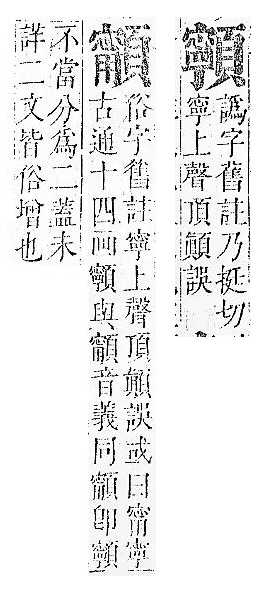 譌字舊註乃挺切
寧上聲頂顛誤
俗字舊註寧上聲頂顛誤或曰甯寧
古通十四画與音義同即
不當分爲二蓋未
詳二文皆俗增也